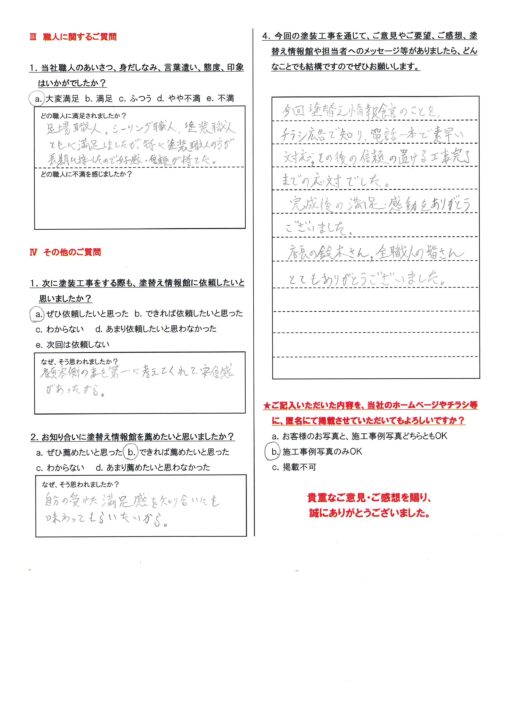 Ⅲ 職人に関するご質問
1. 当社職人のあいさつ、身だしなみ、言葉遣い、態度、印象
はいかがでしたか?
a. 大変満足 b. 満足 c. ふつう d. やや不満 e. 不満
どの職人に満足されましたか?
足場職人、シーリング職人、塗装職人
ともに満足しましたが、特に塗装職人の方が
長期に接したので好感・信頼が持てた。
どの職人に不満を感じましたか?
Ⅳ その他のご質問
1. 次に塗装工事をする際も、塗替え情報館に依頼したいと
思いましたか?
a. ぜひ依頼したいと思った b. できれば依頼したいと思った
c. わからない d. あまり依頼したいと思わなかった
e. 次回は依頼しない
なぜ、そう思われましたか?
顧客側の事を第一に考えてくれて安心感
があったから。
2. お知り合いに塗替え情報館を薦めたいと思いましたか?
a. ぜひ薦めたいと思った b. できれば薦めたいと思った
c. わからない d. あまり薦めたいと思わなかった
なぜ、そう思われましたか?
自分の受けた満足感を知り合いにも
味わってもらいたいから。
4. 今回の塗装工事を通じて、ご意見やご要望、ご感想、塗
替え情報館や担当者へのメッセージ等がありましたら、どん
なことでも結構ですのでぜひお願いします。
今回塗替え情報館のことを、
チラシ広告で知り、電話一本で素早い
対応。その後の信頼の置ける工事完了
までの応対でした。
完成後の満足、感動をありがとう
ございました。
店長の鈴木さん、全職人の皆さん
とてもありがとうございました。
★ご記入いただいた内容を、当社のホームページやチラシ等
に、匿名にて掲載させていただいてもよろしいですか?
a. お客様のお写真と、施工事例写真どちらともOK
b. 施工事例写真のみOK
c. 掲載不可
貴重なご意見・ご感想を賜り、
誠にありがとうございました。